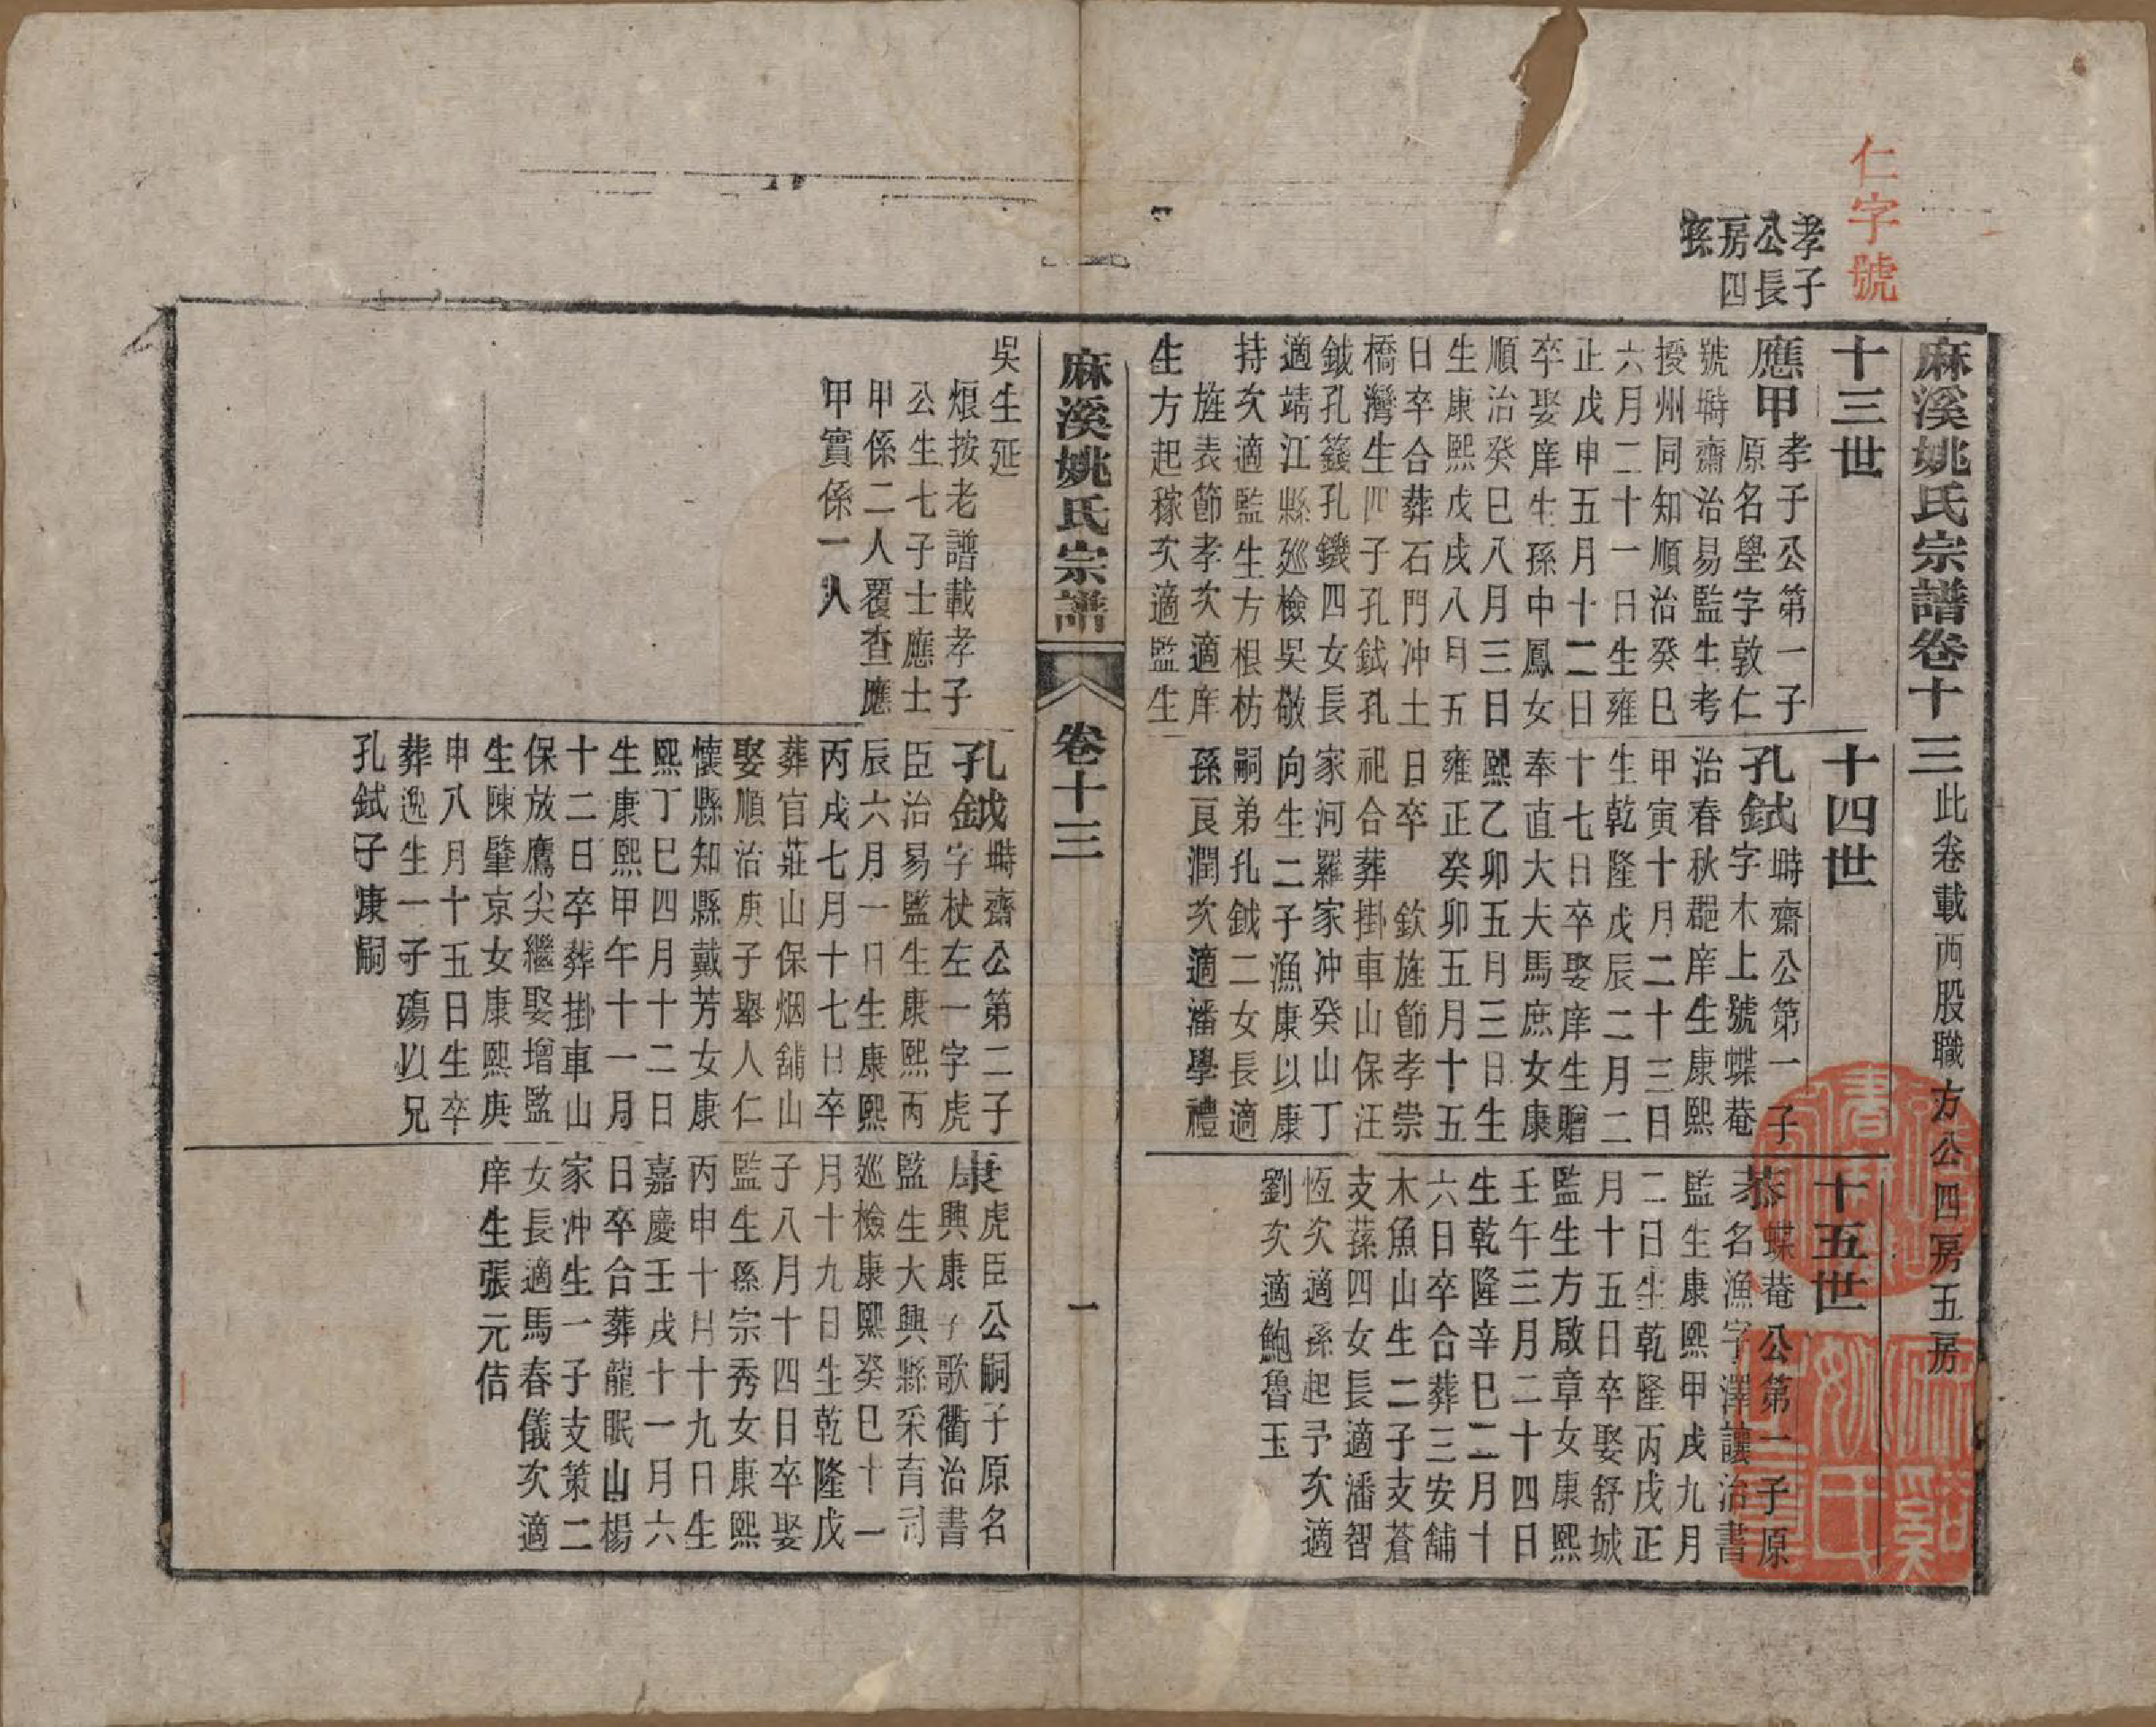 仁字號
孝子
公長
房四
孫
麻溪姚氏宗譜卷十三此卷載西股職方公四房五房
十三世
應甲孝子公第一子
原名壆字敦仁
號塒齋治易監生考
授州同知順治癸巳
六月二十一日生雍
正戊申五月十二日
卒娶庠生孫中鳳女
順治癸巳八月三日
生康熙戊戌八月五
日卒合葬石門冲土
橋灣生四子孔鉽孔
鉞孔籛孔鐖四女長
適靖江縣廵檢吳敬
持次適監生方根枋
旌表節孝次適庠
生方起稼次適監生
十四世
孔鉽塒齋公第一子
字木上號蝶菴
治春秋郡庠生康熙
甲寅十月二十三日
生乾隆戊辰二月二
十七日卒娶庠生贈
奉直大夫馬庶女康
熙乙卯五月三日生
雍正癸卯五月十五
日卒 欽旌節孝崇
祀合葬掛車山保汪
家河羅家冲癸山丁
向生二子漁康以康
嗣弟孔鉞二女長適
孫良潤次適潘學禮
十五世
恭蝶菴公第一子原
名漁字澤讓治書
監生康熙甲戌九月
二日生乾隆丙戌正
月十五日卒娶舒城
監生方啟章女康熙
壬午三月二十四日
生乾隆辛巳二月十
六日卒合葬三安舖
木魚山生二子支蒼
支蓀四女長適潘智
恆次適孫起予次適
劉次適鮑魯玉
麻溪姚氏宗譜 卷十三 一
吳生延
烺按老譜載孝子
公生七子士應士
甲係二人覆查應
甲實係一人
孔鉞塒齋公第二子
字杖左一字虎
臣治易監生康熙丙
辰六月一日生康熙
丙戌七月十七日卒
葬官莊山保烟舖山
娶順治庚子舉人仁
懷縣知縣戴芳女康
熙丁巳四月十二日
生康熙甲午十一月
十二日卒葬掛車山
保放鷹尖繼娶增監
生陳肇京女康熙庚
申八月十五日生卒
葬逸生一子殤以兄
孔鉽子康嗣
康虎臣公嗣子原名
興康字歌衢治書
監生大興縣采育司
巡檢康熙癸巳十一
月十九日生乾隆戊
子八月十四日卒娶
監生孫宗秀女康熙
丙申十月十九日生
嘉慶壬戌十一月六
日卒合葬龍眠山楊
家冲生一子支策二
女長適馬春儀次適
庠生張元佶